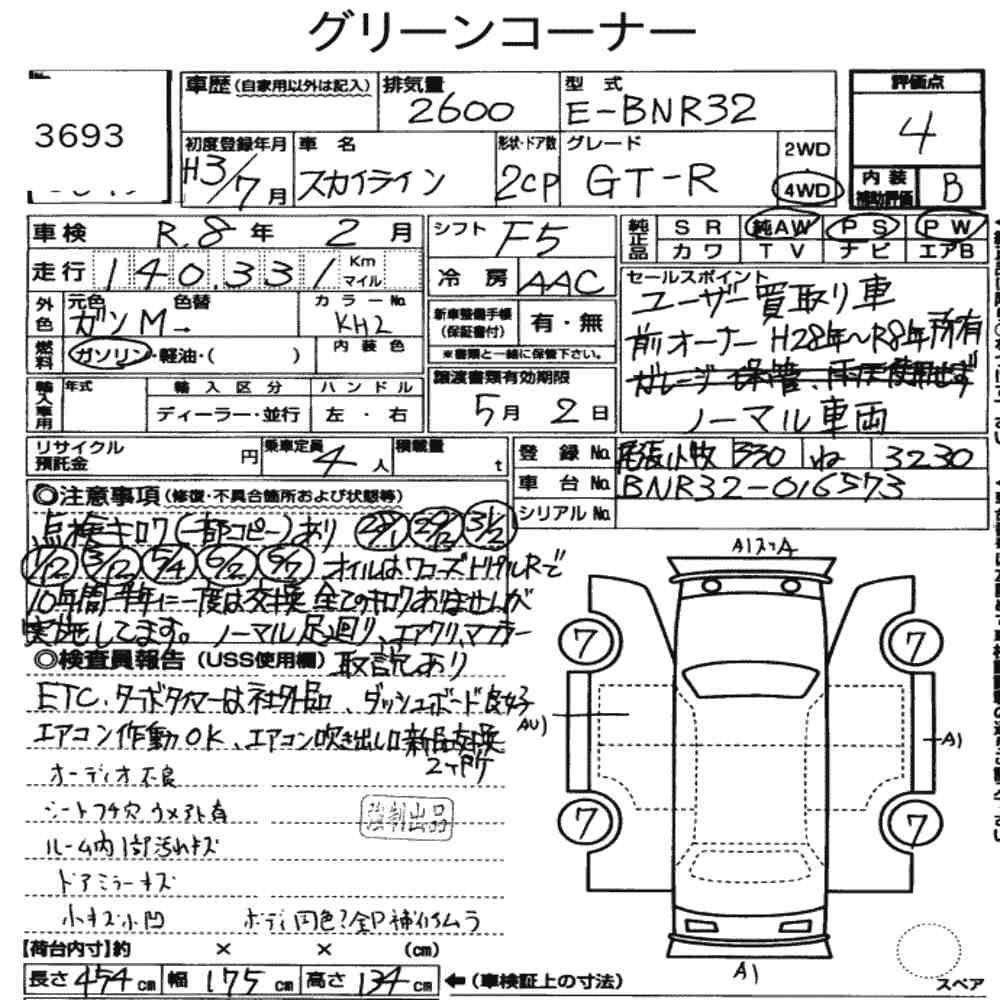 グリーンコーナー
3693
車歴(自家用以外は記入) 排気量 2600 型式 E-BNR32 評価点 4
初度登録年月 H3/7月 車名 スカイライン 形状・ドア数 2CP グレード GT-R 2WD 4WD 内装補助評価 B
車検 R.8年 2月 シフト F5 純正品 SR 純AW PS PW
カワ TV ナビ エアB
走行 140,331 Km マイル 冷房 AAC セールスポイント
外色 元色 ガンM→ 色替 カラーNo. KH2 新車整備手帳(保証書付) 有・無 ユーザー買取り車
燃料 ガソリン・軽油・( ) 内装色 ※書類と一緒に保管下さい。 前オーナーH28年〜R8年所有
輸入車用 年式 輸入区分 ハンドル 譲渡書類有効期限 ガレージ保管、雨天使用せず
ディーラー・並行 左・右 5月2日 ノーマル車両
リサイクル預託金 円 乗車定員 4人 積載量 t 登録No. 尾張小牧 330 ね 3230
車台No. BNR32-016573
シリアルNo.
◎注意事項(修復・不具合箇所および状態等)
点検キロク(一部コピー)あり 28/1 29/2 31/2
1/12 3/12 5/4 6/2 6/7 オイルはワコーズトリプルRで
10年間半年に一度は交換 全てのキロクありませんが
実施してます。ノーマル足回り、エアクリ、マフラー
◎検査員報告(USS使用欄) 取説あり
ETC、ターボタイマーは社外品 ダッシュボード良好
エアコン作動OK、エアコン吹き出し口新品交換
2ヶ所
オーディオ不良
シートフチ穴 ウメアト有
強制出品
ルーム内1部汚れキズ
ドアミラーキズ
小キズ小凹 ボディ同色?全P補修ムラ
【荷台内寸】約 × × (cm)
長さ 454 cm 幅 175 cm 高さ 134 cm ←(車検証上の寸法)
A1スリA
7 7
AU1
A1
7 7
A1
スペア